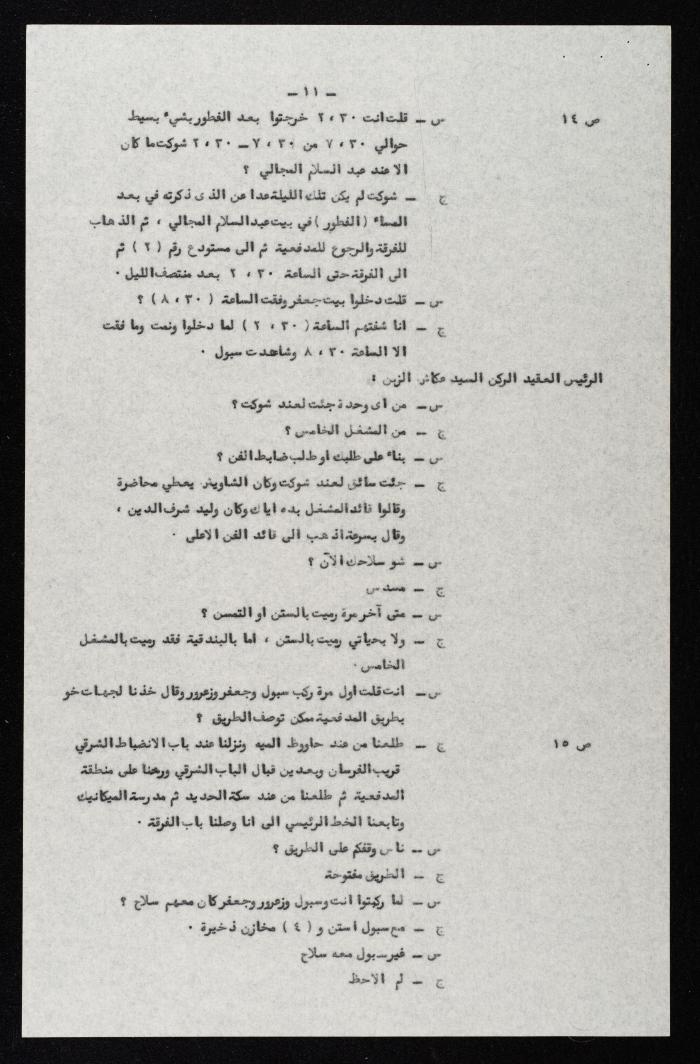 ـ ١١ ـ
ص ١٤ س ـ قلت انت ٣٠ ، ٢ خرجتوا بعد الفطور بشيء بسيط
حوالي ٣٠ ، ٧ من ٣٠ ، ٧ ـ ٣٠ ، ٢ شوكت ما كان
الا عند عبد السلام المجالي ؟
ج ـ شوكت لم يكن تلك الليلة عدا عن الذي ذكرته في بعد
المساء ( الفطور ) في بيت عبد السلام المجالي ، ثم الذهاب
للفرقة والرجوع للمدفعية ثم الى مستودع رقم ( ٢ ) ثم
الى الفرقة حتى الساعة ٣٠ ، ٢ بعد منتصف الليل .
س ـ قلت دخلوا بيت جعفر وفقت الساعة ( ٣٠ ، ٨ ) ؟
ج ـ انا شفتهم الساعة ( ٣٠ ، ٢ ) لما دخلوا ونمت وما فقت
الا الساعة ٣٠ ، ٨ وشاهدت سبول .
الرئيس العقيد الركن السيد عكاش الزبن :
س ـ من اى وحدة جئت لعند شوكت ؟
ج ـ من المشغل الخامس ؟
س ـ بناء على طلبك او طلب ضابط الفن ؟
ج ـ جئت سائق لعند شوكت وكان الشاويش يعطي محاضرة
وقالوا قائد المشغل بده اياك وكان وليد شرف الدين ،
وقال بسرعة اذهب الى قائد الفن الاعلى .
س ـ شو سلاحك الآن ؟
ج ـ مسدس
س ـ متى آخر مرة رميت بالستن او التمسن ؟
ج ـ ولا بحياتي رميت بالستن ، اما بالبندقية فقد رميت بالمشغل
الخامس .
س ـ انت قلت اول مرة ركب سبول وجعفر وزعرور وقال خذنا لجهات خو
بطريق المدفعية ممكن توصف الطريق ؟
ص ١٥ ج ـ طلعنا من عند حاووظ الميه ونزلنا عند باب الانضباط الشرقي
قريب الفرسان وبعدين قبال الباب الشرقي ورحنا على منطقة
المدفعية ثم طلعنا من عند سكة الحديد ثم مدرسة الميكانيك
وتابعنا الخط الرئيسي الى انا وصلنا باب الفرقة .
س ـ ناس وقفكم على الطريق ؟
ج ـ الطريق مفتوحة
س ـ لما ركبتوا انت وسبول وزعرور وجعفر كان معهم سلاح ؟
ج ـ مع سبول استن و ( ٤ ) مخازن ذخيرة .
س ـ غير سبول معه سلاح
ج ـ لم الاحظ